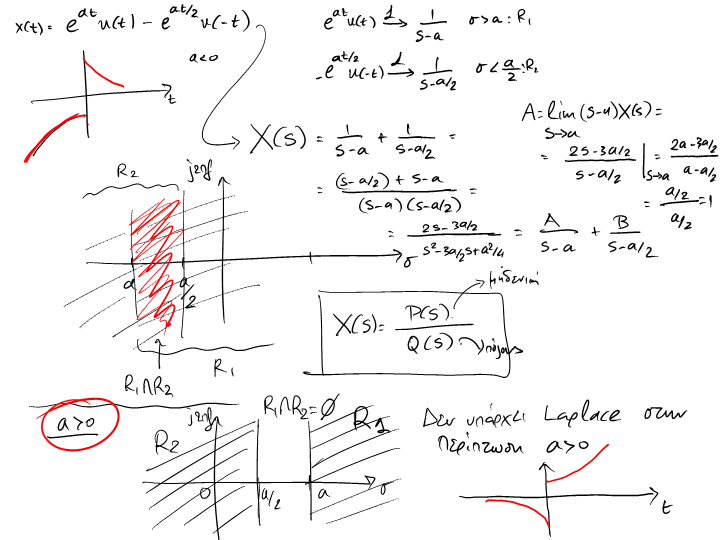 x(t) = e^{at} u(t) - e^{at/2} u(-t)
a<0
t
e^{at} u(t) L→ 1/(s-a) σ>a : R₁
-e^{at/2} u(-t) L→ 1/(s-a/2) σ<a/2 : R₂
X(s) = 1/(s-a) + 1/(s-a/2) =
= ((s-a/2) + s-a)/((s-a)(s-a/2)) =
= (2s-3a/2)/(s²-3a/2s+a²/4) = A/(s-a) + B/(s-a/2)
A = lim (s-a)X(s) =
s→a
= (2s-3a/2)/(s-a/2) |s→a = (2a-3a/2)/(a-a/2)
= (a/2)/(a/2) = 1
R₂
j2πf
a
a/2
σ
R₁∩R₂
R₁
X(s) = P(s)/Q(s)
μηδενικά
πόλους
a>0
j2πf
R₁∩R₂=∅
R₂
R₁
0
a/2
a
σ
Δεν υπάρχει Laplace στην
περίπτωση a>0
t